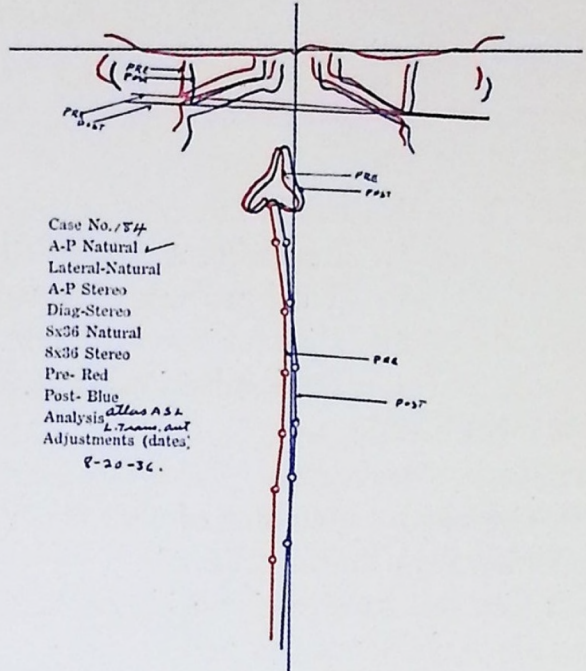 PRE
POST
PRE
POST
PRE
POST
Case No. 184
A-P Natural ✓
Lateral-Natural
A-P Stereo
Diag-Stereo
8x36 Natural
8x36 Stereo
Pre- Red
Post- Blue
Analysis atlas ASL
L. Trans. ant
Adjustments (dates)
8-20-36.
PRE
POST